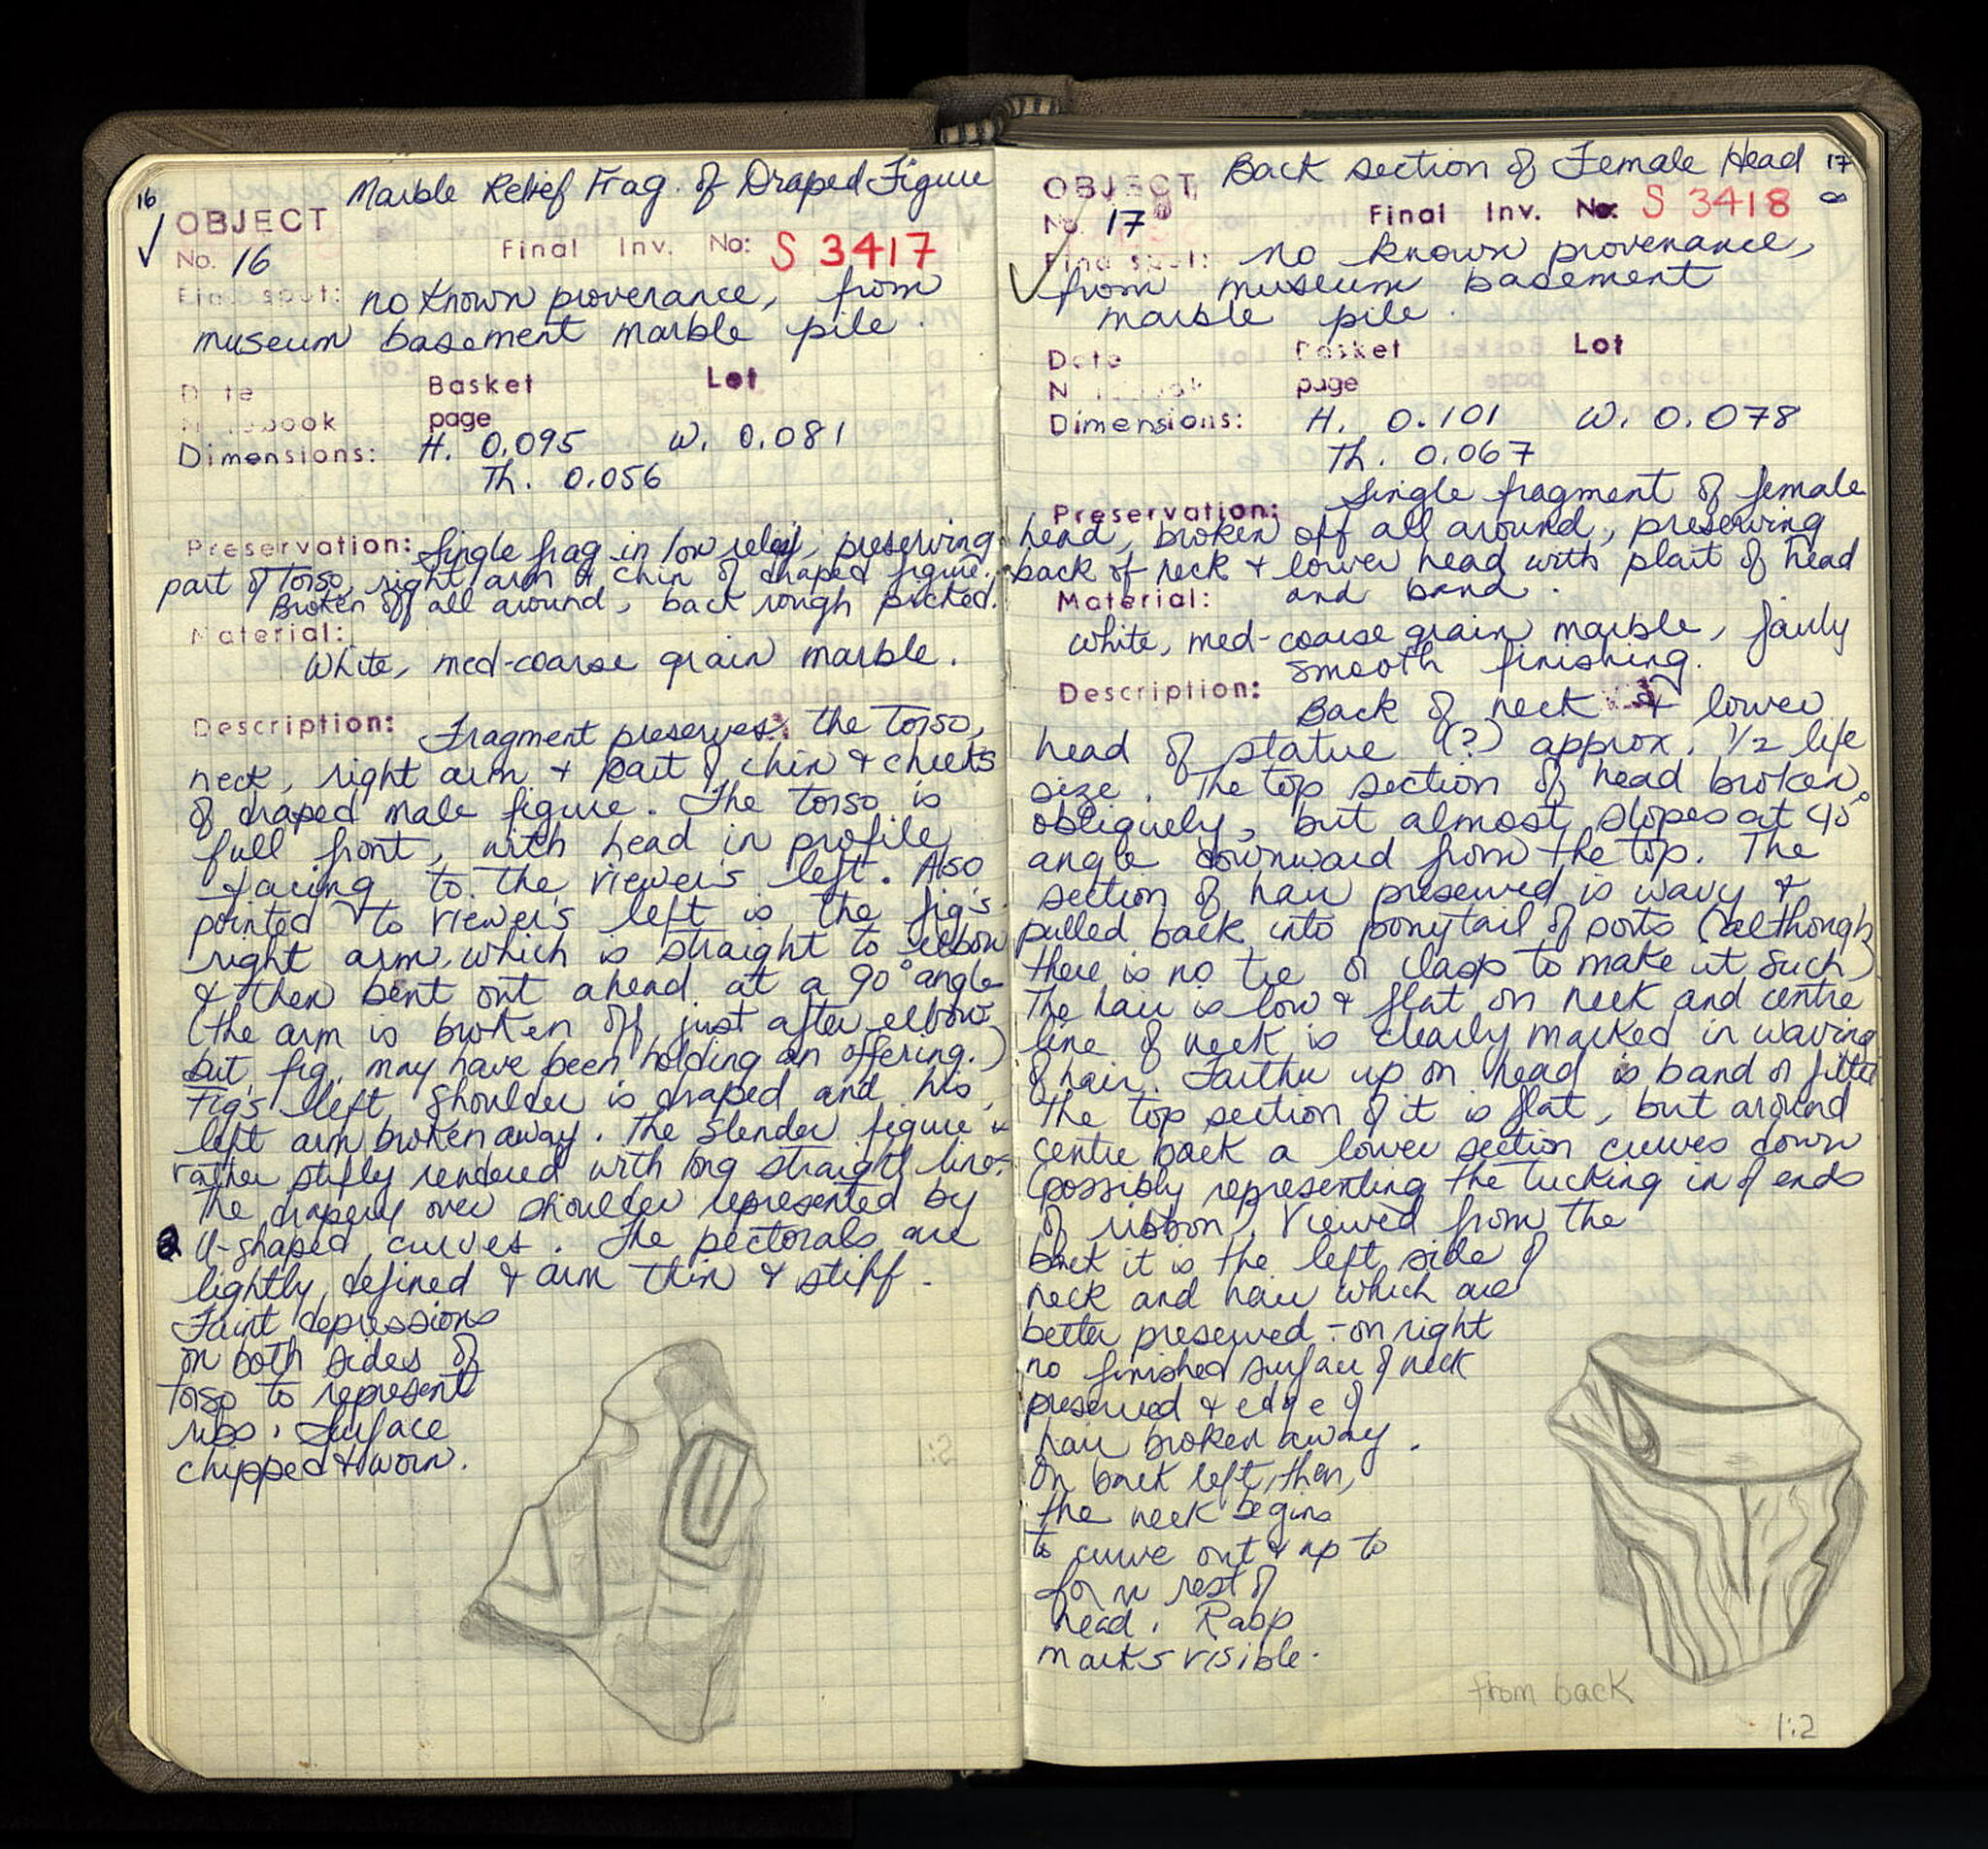 16
Marble Relief Frag. of Draped Figure
OBJECT
No. 16 Final Inv. No: S 3417
Find spot: no known provenance, from
museum basement marble pile.
Date Basket Lot
Notebook page
Dimensions: H. 0.095 W. 0.081
Th. 0.056
Preservation: Single frag in low relief, preserving
part of torso, right arm & chin of draped figure.
Broken off all around, back rough picked.
Material:
White, med-coarse grain marble.
Description: Fragment preserves the torso,
neck, right arm + part of chin + cheeks
of draped male figure. The torso is
full front, with head in profile
facing to the viewer's left. Also
pointed to viewer's left is the fig's
right arm, which is straight to elbow
& then bent out ahead at a 90° angle
(the arm is broken off just after elbow
but fig. may have been holding an offering.)
Fig's left shoulder is draped and his
left arm broken away. The slender figure is
rather stiffly rendered with long straight lines.
The drapery over shoulder represented by
U-shaped curves. The pectorals are
lightly defined & arm thin & stiff.
Faint depressions
on both sides of
torso to represent
ribs. Surface
chipped & worn.
17
Back section of Female Head
OBJECT
No. 17 Final Inv. No: S 3418
Find spot: no known provenance,
from museum basement
marble pile.
Date Basket Lot
N page
Dimensions: H. 0.101 W. 0.078
Th. 0.067
Preservation: Single fragment of female
head, broken off all around, preserving
back of neck + lower head with plait of head
and band.
Material:
white, med-coarse grain marble, fairly
smooth finishing.
Description: Back of neck & lower
head of statue (?) approx. 1/2 life
size. The top section of head broken
obliquely, but almost slopes at 45°
angle downward from the top. The
section of hair preserved is wavy &
pulled back into ponytail of sorts (although
there is no tie or clasp to make it such)
The hair is low & flat on neck and centre
line of neck is clearly marked in waving
of hair. Farther up on head is band or fillet
The top section of it is flat, but around
centre back a lower section curves down
(possibly representing the tucking in of ends
of ribbon). Viewed from the
back it is the left side of
neck and hair which are
better preserved - on right
no finished surface of neck
preserved & edge of
hair broken away.
On back left, then,
the neck begins
to curve out & up to
form rest of
head. Rasp
marks visible.
from back
1:2